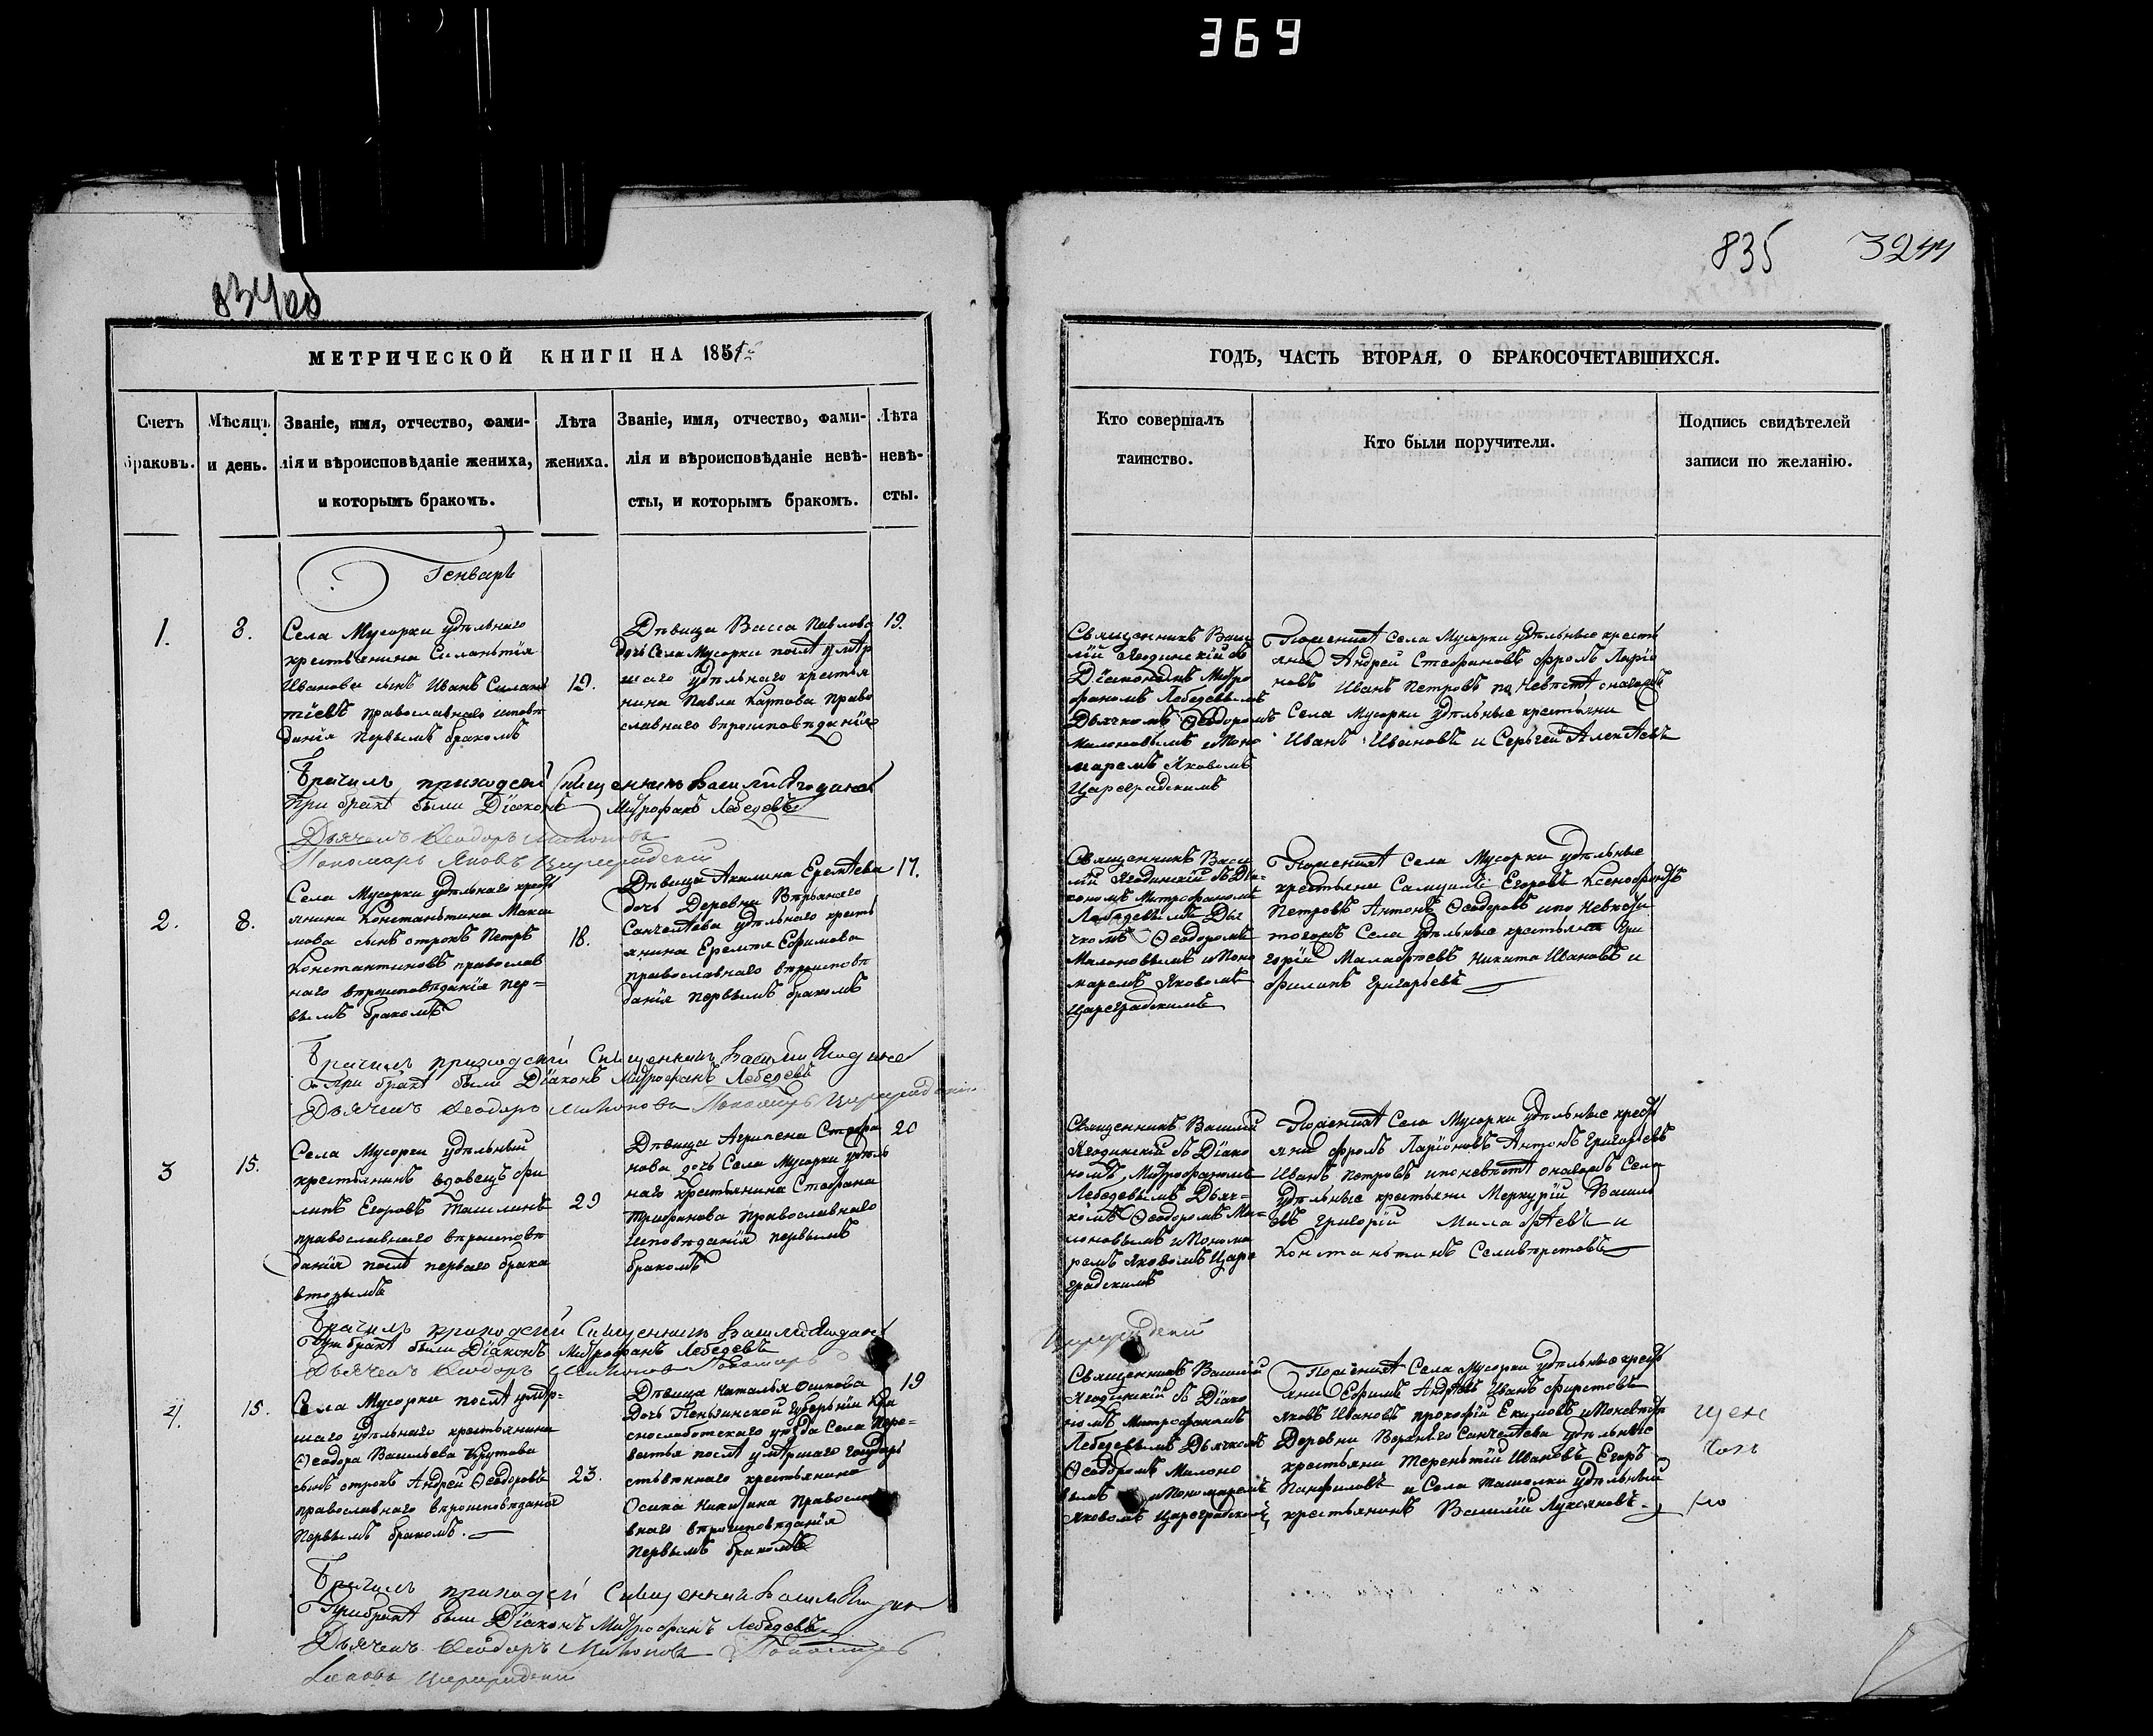 369
834об
835
3244
МЕТРИЧЕСКОЙ КНИГИ НА 1851
Счетъ браковъ.
Мѣсяцъ и день.
Званіе, имя, отчество, фами-
лія и вѣроисповѣданіе жениха,
и которымъ бракомъ.
Лѣта
жениха.
Званіе, имя, отчество, фами-
лія и вѣроисповѣданіе невѣ-
сты, и которымъ бракомъ.
Лѣта
невѣ-
сты.
Генварь
1.
8.
Села Мусорки удѣльнаго
крестьенина Силантія
Иванова сынъ Иванъ Силан
тіевъ православнаго исповѣ
данія первымъ бракомъ
19.
Дѣвица Васса Павлова
дочь Села Мусорки послѣ умер
шаго удѣльнаго крестья
нина Павла Карпова право
славнаго вѣроисповѣданія
19.
Врачилъ приходскій Священникъ Василій Ягодинскій
При бракѣ были Діаконъ Митрофанъ Лебедевъ
Дьячекъ Ѳеодоръ Милоновъ
Пономарь Яковъ Цареградскій
2.
8.
Села Мусорки удѣльнаго крест
янина Константина Макси
мова сынъ отрокъ Петръ
Константиновъ православ
наго вѣроисповѣданія пер=
вымъ бракомъ
18.
Дѣвица Акилина Еремѣева
дочь Деревни Верхняго
Санчелѣева удѣльнаго кресть
янина Еремѣя Ефимова
православнаго вѣроисповѣ
данія первымъ бракомъ
17.
Врачилъ приходскій Священникъ Василій Ягодинск
При бракѣ были Діаконъ Митрофанъ Лебедевъ
Дьячекъ Ѳеодоръ Милоновъ Пономарь Цареградскій
3
15.
Села Мусорки удѣльный
крестьянинъ вдовецъ Фи
липъ Егоровъ Ташлинъ
православнаго вѣроисповѣ
данія послѣ перваго брака
вторымъ
29
Дѣвица Агрипена Стефа
нова дочь Села Мусорки удѣль
наго крестьянина Стефана
Трифанова православнаго
исповѣданія первымъ
бракомъ
20
Врачилъ приходскій Священникъ Василій Ягодинс
При бракѣ были Діаконъ Митрофанъ Лебедевъ
Дьячекъ Ѳеодоръ Милоновъ Пономарь
4.
15.
Села Мусорки послѣ умер=
шаго удѣльнаго крестьянина
Ѳеодора Васильева Крутова
сынъ отрокъ Андрей Ѳеодоровъ
православнаго вѣроисповѣданія
Первымъ бракомъ.
23.
Дѣвица Наталья Осипова
Дочь Пензинской Губерніи Кра
снослоботскаго уѣзда Села Пере=
весья послѣ умершаго государ
ственнаго крестьянина
Осипа Никитина Правосла
внаго вѣроисповѣданія
Первымъ бракомъ
19
Врачилъ приходскій Священникъ Василій Ягодин
При бракѣ были Діаконъ Митрофанъ Лебедевъ
Дьячекъ Ѳеодоръ Милоновъ Пономарь
Яковъ Цареградскій
ГОДЪ, ЧАСТЬ ВТОРАЯ, О БРАКОСОЧЕТАВШИХСЯ.
Кто совершалъ
таинство.
Кто были поручители.
Подпись свидѣтелей
записи по желанію.
Священникъ Васи
лій Ягодинскій съ
Діакономъ Митро
фаномъ Лебедевымъ
Дьячкомъ Ѳеодоромъ
Милоновымъ и Поно
маремъ Яковомъ
Цареградскимъ
По женихѣ Села Мусорки удѣльные кресть
яне Андрей Стефановъ Фролъ Ларіо
новъ Иванъ Петровъ по невѣстѣ онагожъ
Села Мусорки удѣльные крестьяни
Иванъ Ивановъ и Сергей Алексѣевъ
Священникъ Васи
лій Ягодинскій съ Діа=
кономъ Митрофаномъ
Лебедевымъ Дья
чкомъ Ѳеодоромъ
Милоновымъ и Поно
маремъ Яковомъ
Цареградскимъ
По женихѣ Села Мусорки удѣльные
крестьяни Самуилъ Егоровъ Ксенофонтъ
Петровъ Антонъ Ѳеодоровъ и по невѣсти
тогожъ Села удѣльные крестьяни Гри
горій Малафѣевъ Никита Ивановъ и
Филипъ Григорьевъ
Священникъ Василій
Ягодинскій съ Діако
номъ Митрофаномъ
Лебедевымъ Дьяч=
комъ Ѳеодоромъ Ми=
лоновымъ и Понома
ремъ Яковомъ Царе
градскимъ
По женихѣ Села Мусорки удѣльные крест
яни Фролъ Ларіоновъ Антонъ Григорьевъ
Иванъ Петровъ и по невѣстѣ онагожъ Села
удѣльные крестьяни Меркурій Василь
евъ Григорій Малафѣевъ и
Константинъ Селивёрстовъ
Цареградскій
Священникъ Василій
Ягодинскій съ Діако
номъ Митрофаномъ
Лебедевымъ Дьячкомъ
Ѳеодоромъ Милоно
вымъ и Пономаремъ
Яковомъ Цареградскимъ
По женихѣ Села Мусорки удѣльные крест
яни Ефимъ Андрѣевъ Иванъ Фирстовъ
Яковъ Ивановъ Прокофій Екимовъ и По невѣстѣ
Деревни Верхняго Санчелѣева удѣльные
крестьяни Терентій Ивановъ Егоръ
Панфиловъ и Села Ташолки удѣльный
крестьянинъ Василій Лукояновъ